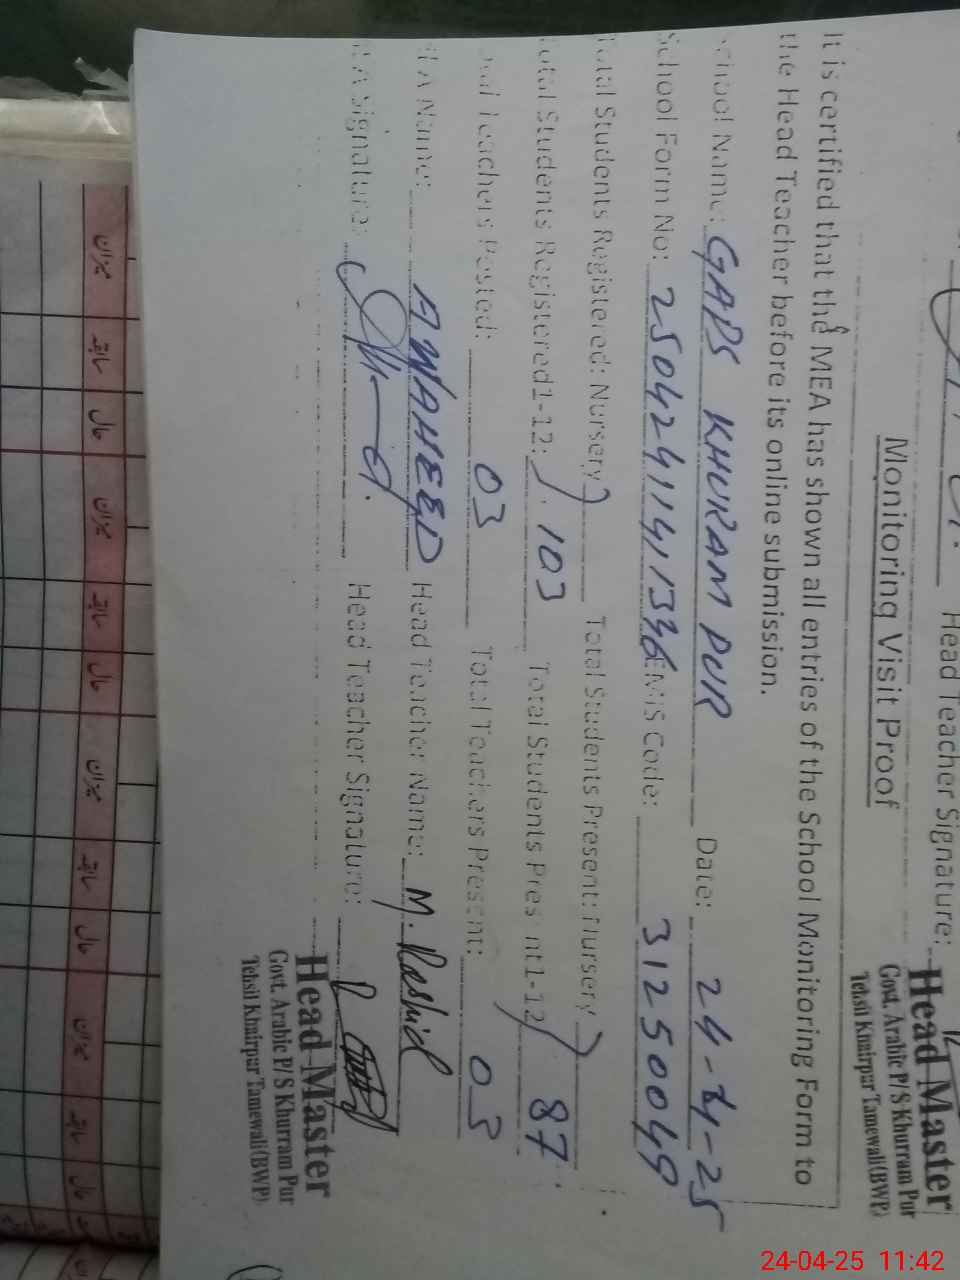 Head Teacher Signature:
Head Master
Govt. Arabic P/S Khurram Pur
Tehsil Khairpur Tamewali (BWP)
Monitoring Visit Proof
It is certified that the MEA has shown all entries of the School Monitoring Form to
the Head Teacher before its online submission.
School Name: GAPS KHURAM PUR Date: 24-04-25
School Form No: 2504241141336 EMIS Code: 31250049
Total Students Registered: Nursery Total Students Present: Nursery
Total Students Registered 1-12: 103 Total Students Present 1-12 87
Total Teachers Posted: 03 Total Teachers Present: 03
MEA Name: A WAHEED Head Teacher Name: M. Rashid
MEA Signature: Head Teacher Signature:
Head Master
Govt. Arabic P/S Khurram Pur
Tehsil Khairpur Tamewali (BWP)
میزان سابقہ حال میزان سابقہ حال میزان سابقہ حال میزان سابقہ حال
24-04-25 11:42